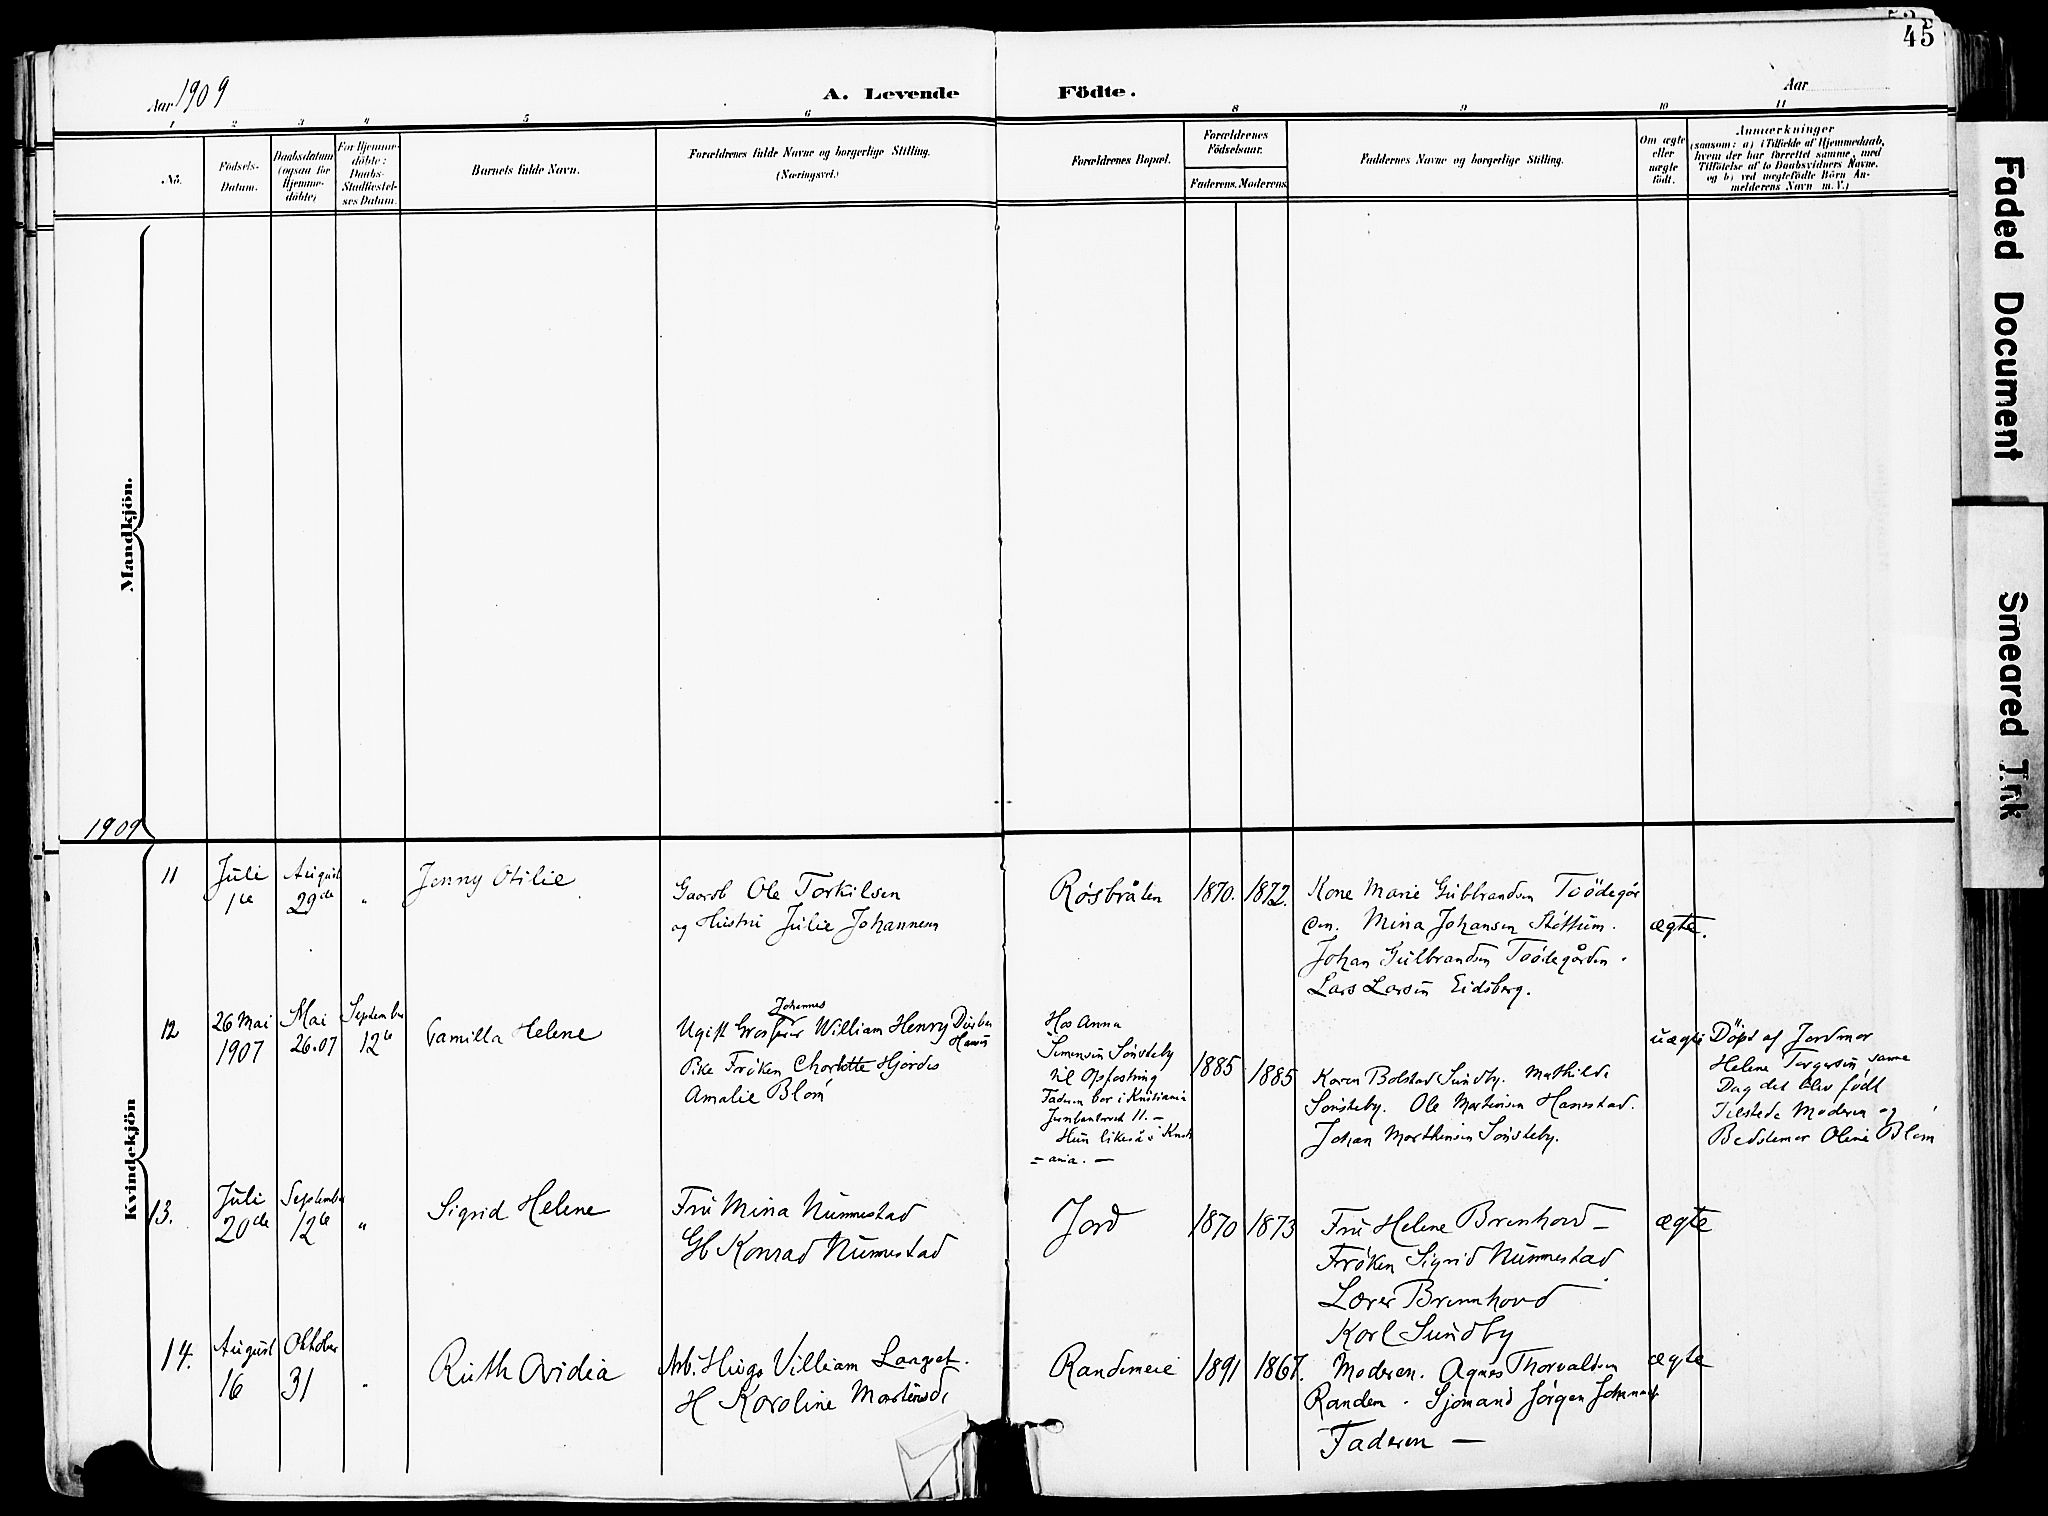 45
Aar 1909
A. Levende Födte.
Aar
1 2 3 4 5 6 8 9 10 11
No.
Födsels-
Datum.
Daabsdatum
(ogsaa for
Hjemme-
döbte)
For Hjemme-
döbte:
Daabs-
Stadfæstel-
ses Datum.
Barnets fulde Navn.
Forældrenes fulde Navne og borgerlige Stilling.
(Næringsvei.)
Forældrenes Bopæl.
Forældrenes
Födselsaar.
Faderens. Moderens.
Faddernes Navne og borgerlige Stilling.
Om ægte
eller
uægte
födt.
Anmærkninger
(saasom: a) i Tilfælde af Hjemmedaab,
hvem der har forrettet samme, med
Tilföielse af to Daabsvidners Navne,
og b) ved uægtefödte Börn An-
melderens Navn m. V.)
Mandkjön.
1909
Kvindekjön
11
Juli
1te
August
29de
"
Jenny Otilie
Gaardb Ole Torkilsen
og Hustru Julie Johannesen
Røsbråten
1870.
1872.
Kone Marie Gulbrandsen Tøödegår
den. Mina Johansen Støttum.
Johan Gulbrandsen Tøödegården.
Lars Larsen Eidsberg.
ægte.
12
26 Mai
1907
Mai
26.07
September
12te
Camilla Helene
Johannes
Ugift Grosserer William Henry
Hansen
Pike Frøken Charlotte Hjørdis
Amalie Blom
Hos Anna
Simensen Sønsteby
til Opfostring
Faderen bor i Kristiania
11. –
Hun likeså i Krist
= ania. –
1885
1885
Karen Bolstad Sundby. Mathilde
Sønsteby. Ole Martinsen Hanestad.
Johan Marthinsen Sønsteby.
uægte
Döpt af Jordmor
Helene Torgersen samme
Dag det blev født
Tilstede Moderen og
Bedstemor Oline Blom
13.
Juli
20de
September
12te
"
Sigrid Helene
Fru Mina Nummestad
Gb Konrad Nummestad
Jord
1870
1873
Fru Helene Brenhovd –
Frøken Sigrid Nummestad
Lærer Brennhovd
Karl Sundby
ægte
14.
August
16
Oktober
31
"
Ruth Ovidia
Arb. Hugo Villiam Langset.
H Karoline Martinsd.
Randemeie
1891
1867.
Moderen. Agnes Thorvaldsen
Randem. Sjømand Jørgen Johannesen
Faderen –
ægte
Faded Document
Smeared Ink